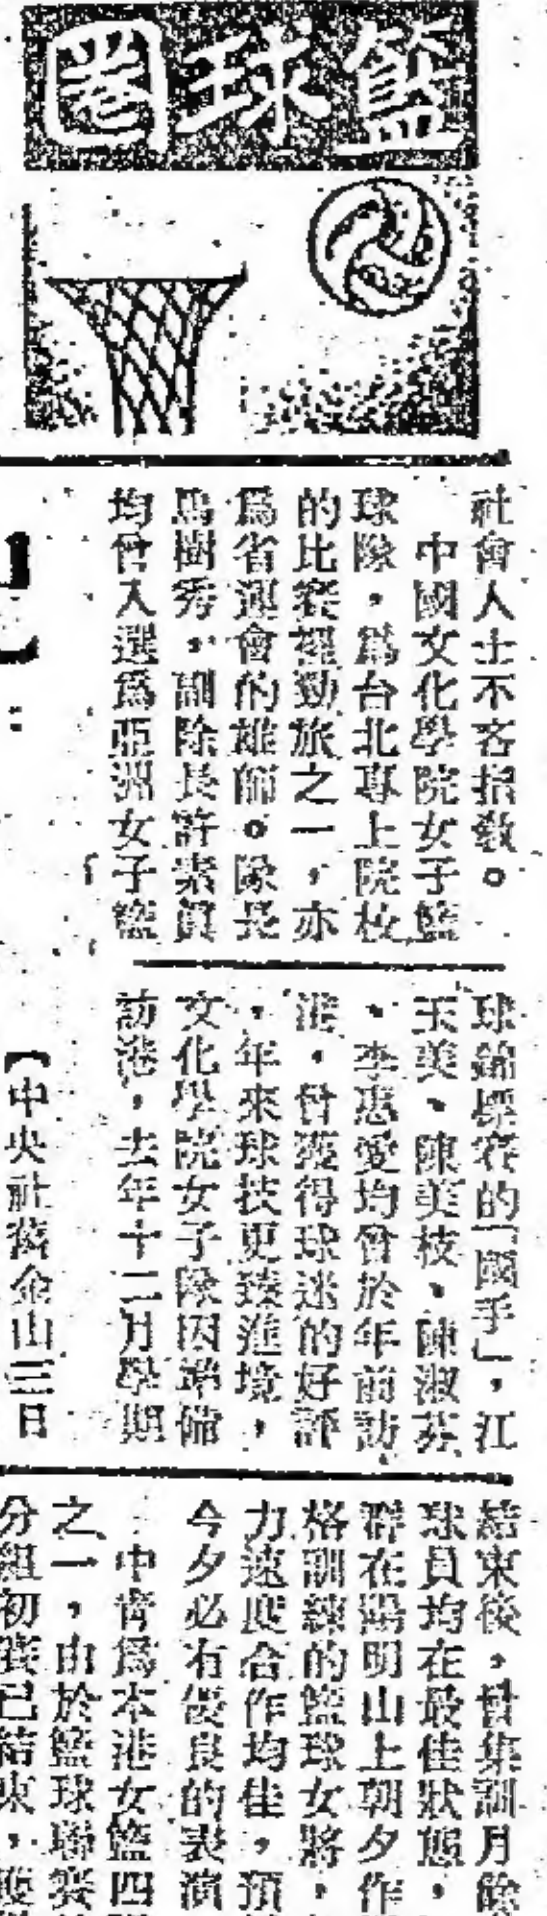 籃球圈
社會人士不吝指教。
中國文化學院女子籃
球隊,為台北專上院校
的比賽裡勁旅之一,亦
為省運會的雄師。隊長
馬樹秀,副隊長許素眞
均曾入選為亞洲女子籃
球錦標賽的「國手」,江
玉美、陳美枝、陳淑芬
、李惠愛均曾於年前訪
港,曾獲得球迷的好評
,年來球技更臻進境,
文化學院女子隊因準備
訪港,去年十二月學期
結束後,曾集訓月餘
球員均在最佳狀態,
群在陽明山上朝夕作
格訓練的籃球女將,
力速度合作均佳,預
今夕必有優良的表演
中青為本港女籃四
之一,由於籃球聯賽
分組初賽已結束,獲
【中央社舊金山三日